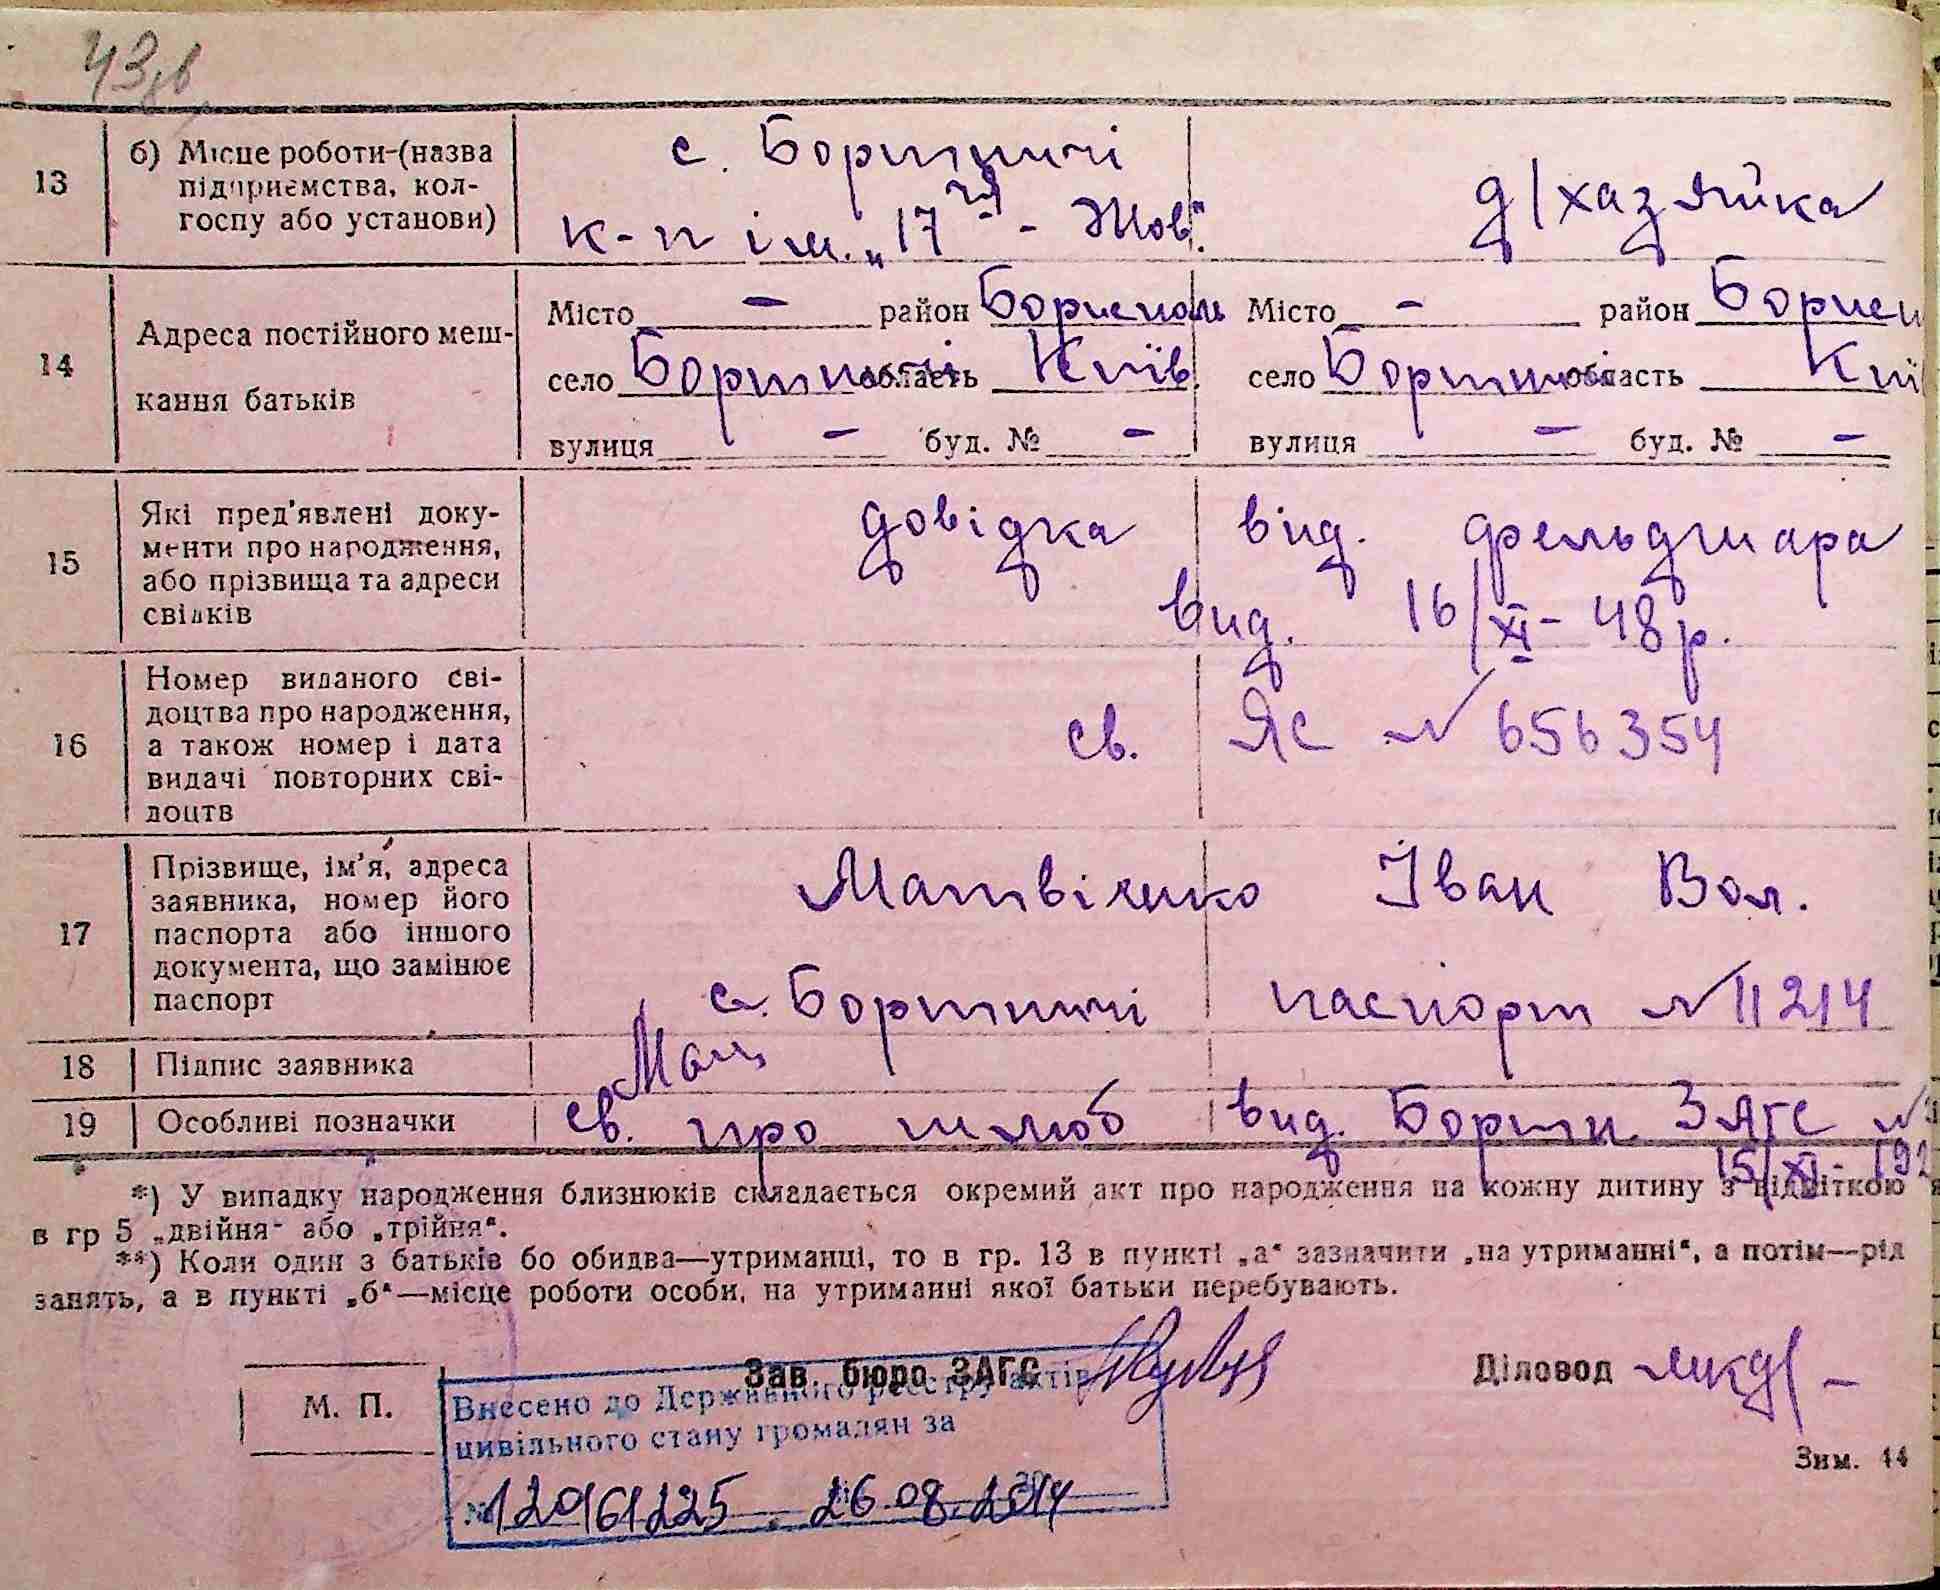 43 зв
13
б) Місце роботи-(назва
підприємства, кол-
госпу або установи)
с. Бортничі
к-п ім. „17ги - Жов."
д/хазяйка
14
Адреса постійного меш-
кання батьків
Місто - район Бориспол
село Бортничі область Київ.
вулиця - буд. № -
Місто - район Борисп
село Бортничі область Киї
вулиця - буд. № -
15
Які пред'явлені доку-
менти про народження,
або прізвища та адреси
свідків
довідка вид. фельдшара
вид. 16/XI - 48 р.
16
Номер виданого сві-
доцтва про народження,
а також номер і дата
видачі повторних сві-
доцтв
св. ЯС № 656354
17
Прізвище, ім'я, адреса
заявника, номер його
паспорта або іншого
документа, що замінює
паспорт
Матвієнко Іван Вол.
с. Бортничі паспорт № 11214
18
Підпис заявника
19
Особливі позначки
св. про шлюб вид. Бортн. ЗАГС №
15/XI - 192
*) У випадку народження близнюків складається окремий акт про народження на кожну дитину з відміткою
в гр 5 „двійня" або „трійня".
**) Коли один з батьків бо обидва—утриманці, то в гр. 13 в пункті „а" зазначити „на утриманні", а потім—рід
занять, а в пункті „б"—місце роботи особи, на утриманні якої батьки перебувають.
М. П.
Зав. бюро ЗАГС
Діловод
Внесено до Державного реєстру актів
цивільного стану громадян за
№ 12961225 . 26.08.2014
Зим. 44